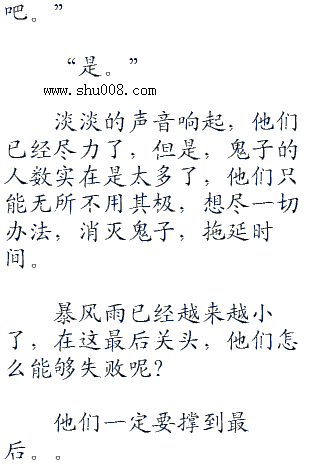 吧。”
“是。”
www.shu008.com
淡淡的声音响起，他们
已经尽力了，但是，鬼子的
人数实在是太多了，他们只
能无所不用其极，想尽一切
办法，消灭鬼子，拖延时
间。
暴风雨已经越来越小
了，在这最后关头，他们怎
么能够失败呢？
他们一定要撑到最
后。。